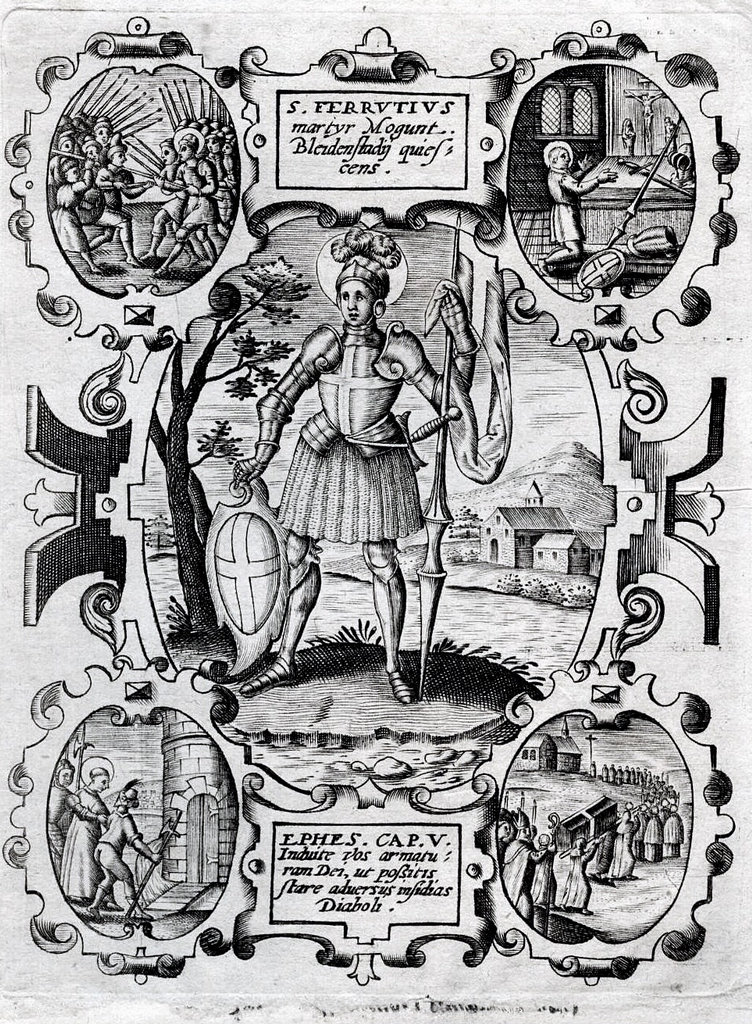 S. FERRVTIVS
martyr Mogunt.
Bleidenstadij quies-
cens.
EPHES. CAP. V.
Induite vos armatu-
ram Dei, ut poßitis
stare adversus insidias
Diaboli.